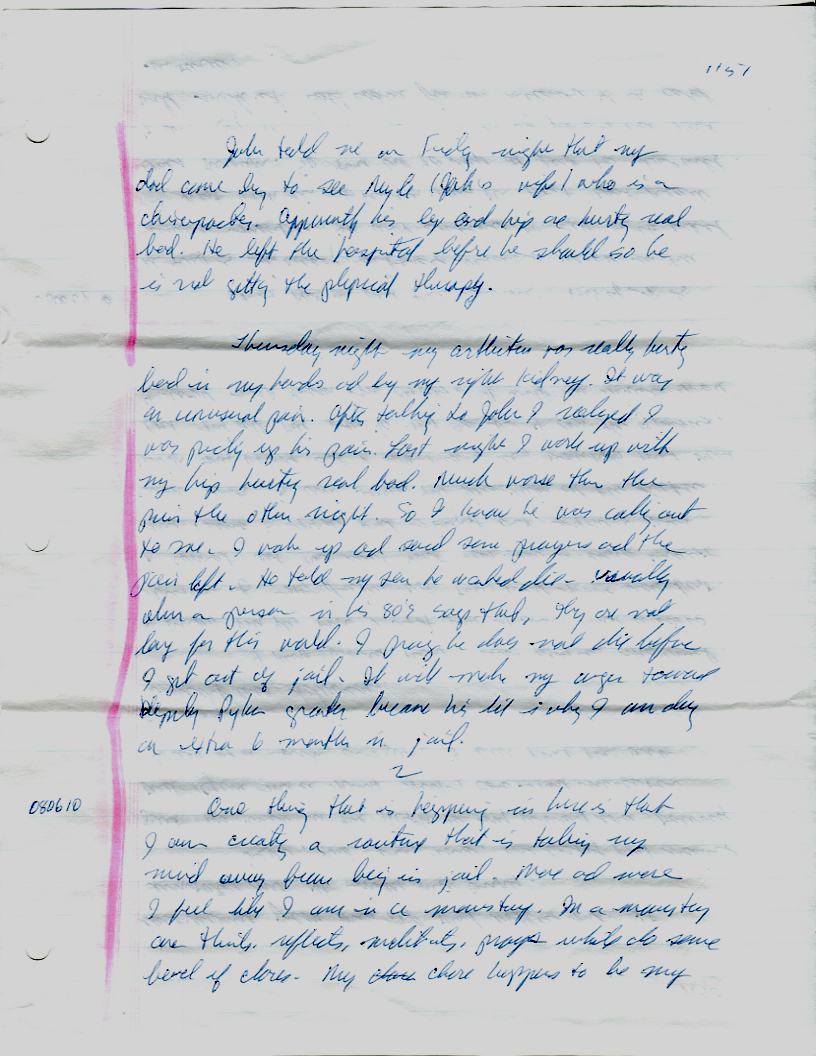 1157
John told me on Friday night that my
dad came by to see (John's wife) who is a
chiropractor. Apparently his leg and hip are hurting real
bad. He left the hospital before he should so he
is not getting the physical therapy.
Thursday night my arthritis was really hurting
bad in my hands and by my right kidney. It was
an unusual pain. After talking to John I realized I
was picking up his pain. Last night I woke up with
my hip hurting real bad. Much worse than the
pain the other night. So I know he was calling out
to me. I woke up and said some prayers and the
pain left. He told my son he wanted die - usually
when a person in his 80's says that, they are not
long for this world. I pray he does not die before
I get out of jail. It will make my anger toward
Deputy greater because his lie is why I am doing
an extra 6 months in jail.
2
080610
One thing that is happening in here is that
I am creating a routine that is taking my
mind away from being in jail. More and more
I feel like I am in a monastery. In a monastery
one thinks, reflects, meditates, prays while do some
kind of chores. My chore happens to be my